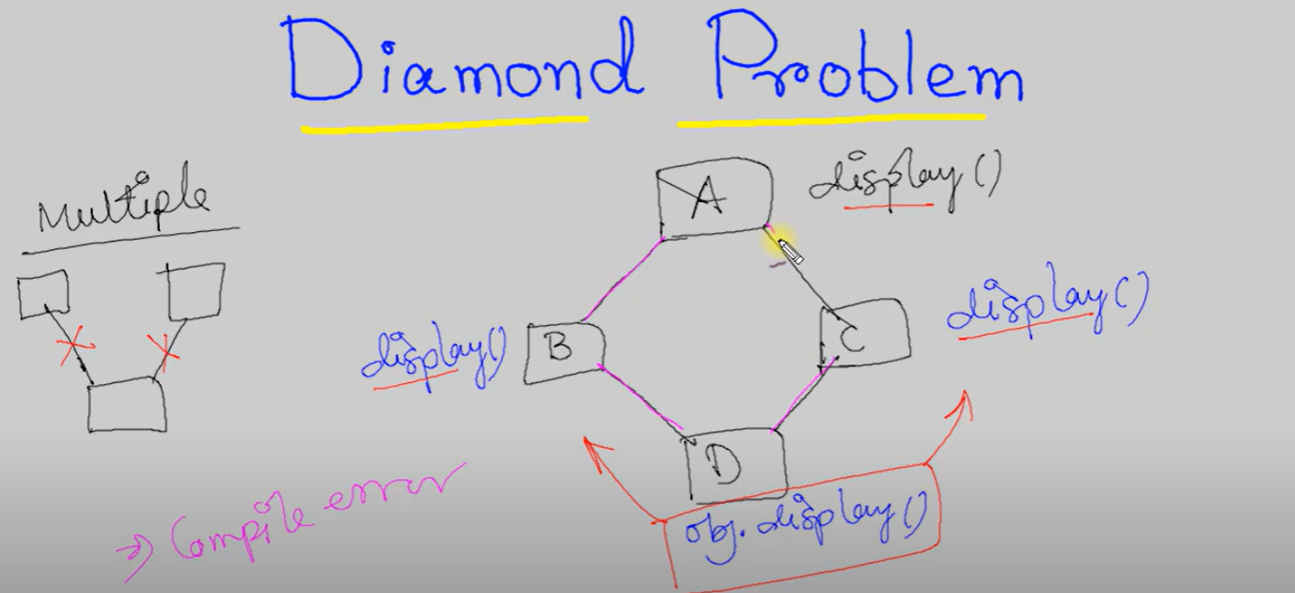 Diamond Problem
Multiple
A
display()
B
display()
C
display()
D
obj.display()
=> Compile error